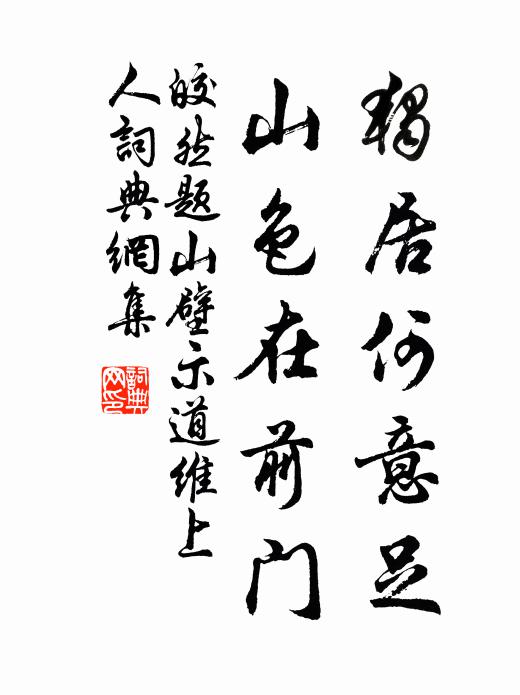 獨居何意足
山色在前門
皎然題山壁示道維上
人詞典網集
詞典网印